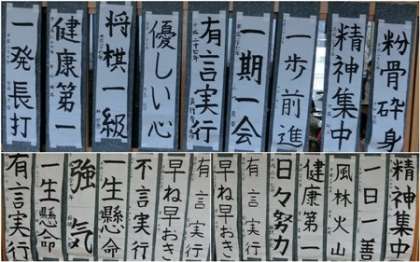 一発長打
健康第一
将棋一級
優しい心
有言実行
一期一会
一歩前進
精神集中
粉骨砕身
有言実行
一生懸命
強気
一生懸命
不言実行
早ね早おき
有言実行
早ね早おき
有言実行
日々努力
健康第一
風林火山
一日一善
精神集中